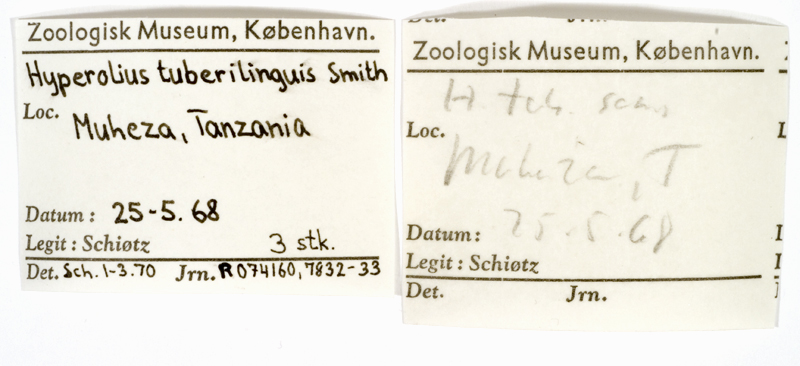 Zoologisk Museum, København.
Hyperolius tuberilinguis Smith
Loc. Muheza, Tanzania
Datum: 25-5.68
Legit: Schiøtz 3 stk.
Det. Sch. 1-3.70 Jrn. R074160, 7832-33
Zoologisk Museum, København.
H.
Loc. Muheza, T
Datum: 25.5.68
Legit: Schiøtz
Det. Jrn.